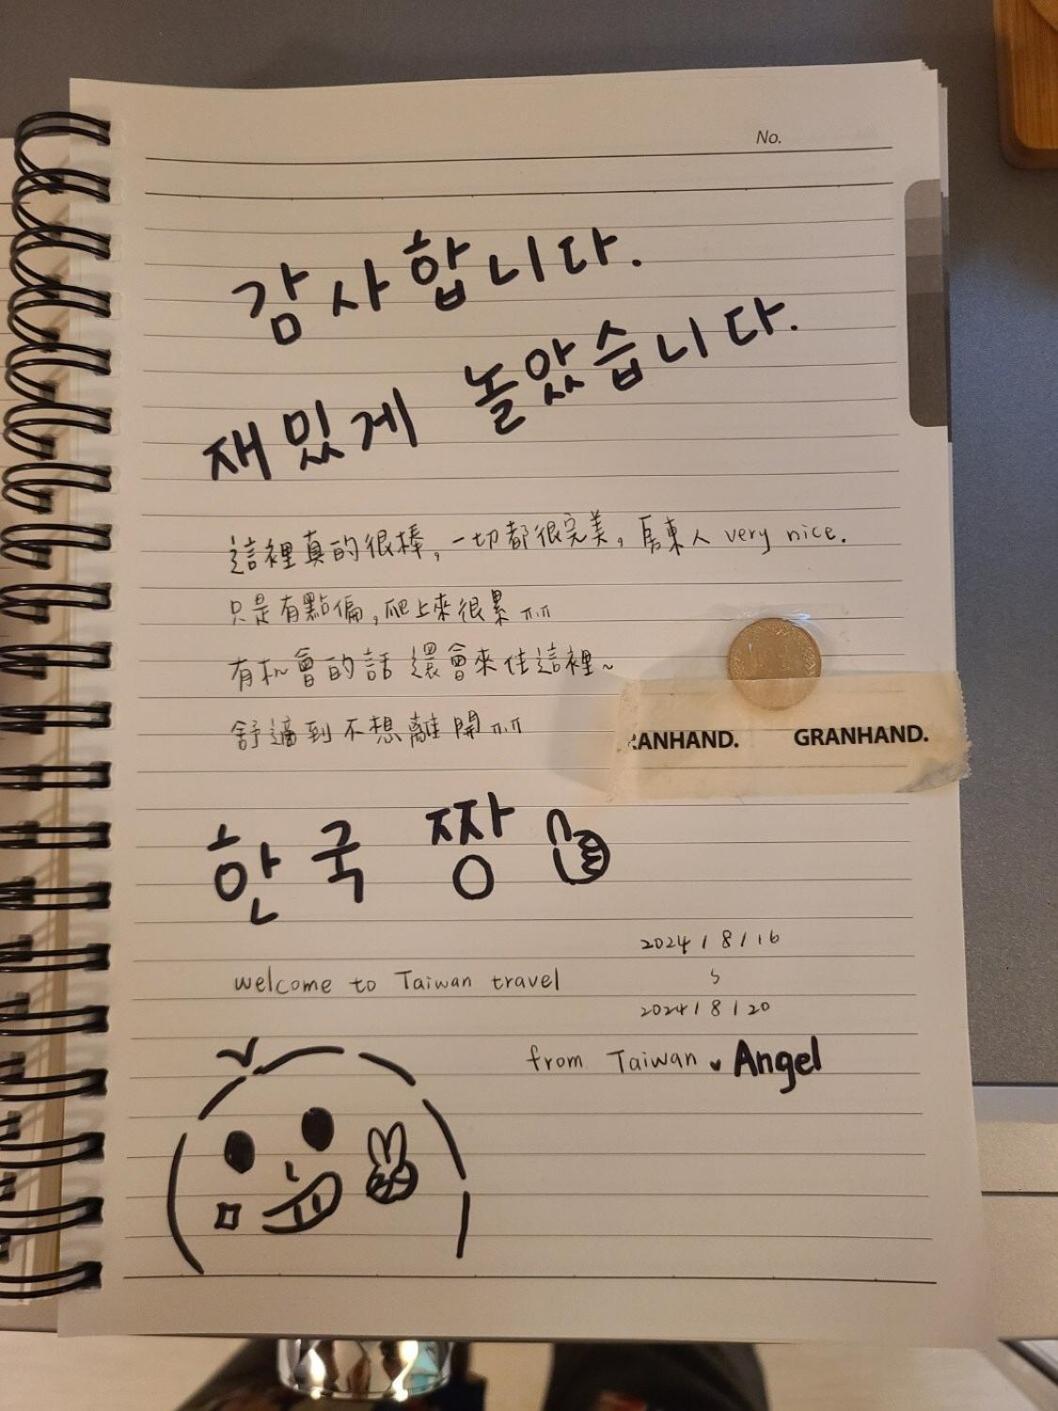 No.
감사합니다.
재밌게 놀았습니다.
這裡真的很棒,一切都很完美,房東人 very nice.
只是有點偏,爬上來很累 ㅠㅠ
有机會的話 還會來住這裡~
舒適到不想離開 ㅠㅠ
RANHAND. GRANHAND.
한국 짱
2024/8/16
welcome to Taiwan travel
2024/8/20
from Taiwan Angel